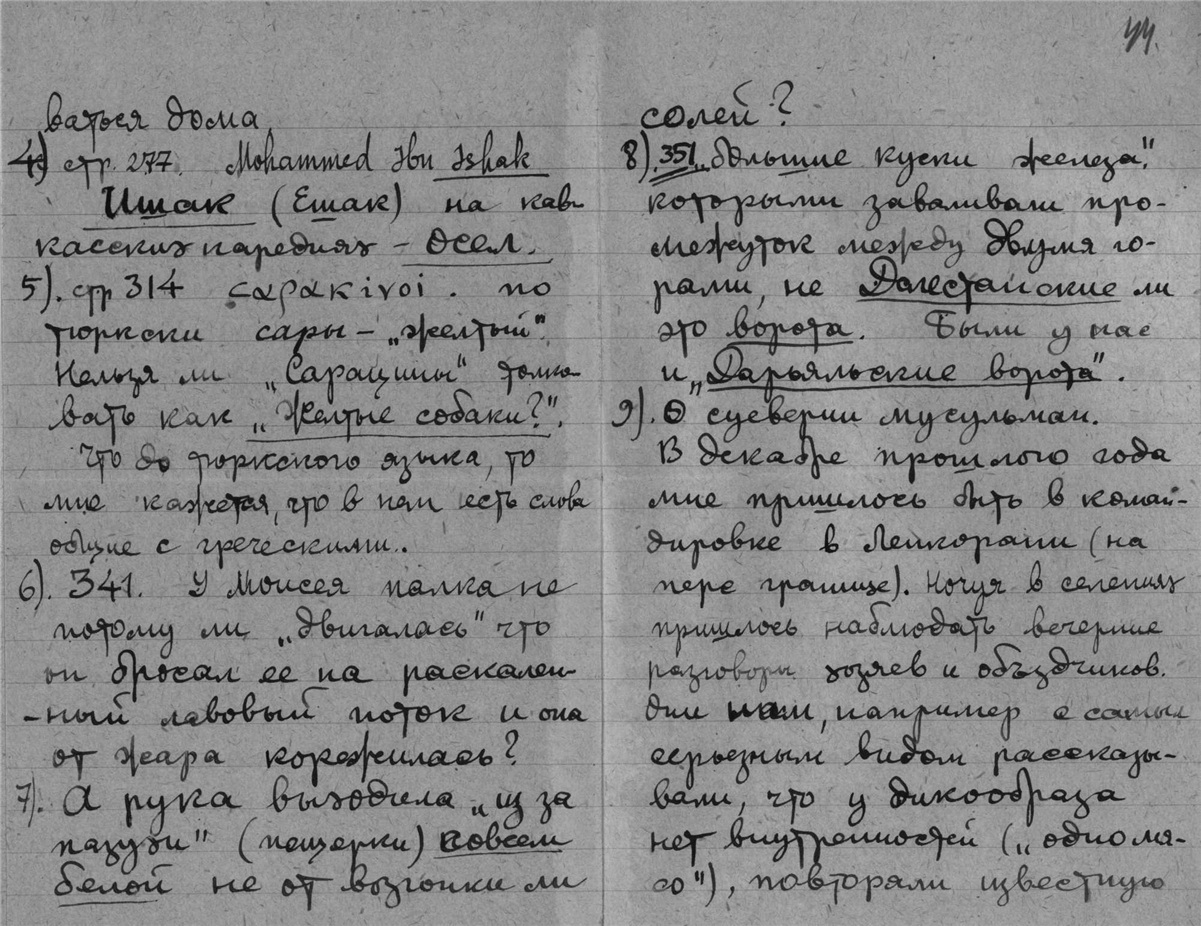 44.
ваться дома
4) стр. 277. Mohammed Ibn Ishak
Ишак (Ешак) на кав-
касских наречиях – осел.
5). стр 314 σαρακινοι. по
тюркски сары – „желтый".
Нельзя ли „Сарацины" толко-
вать как „Желтые собаки?".
Что до тюркского языка, то
мне кажется, что в нем есть слова
общие с греческими..
6). 341. У Моисея палка не
потому ли „двигалась" что
он бросал ее на раскален-
-ный лавовый поток и она
от жара корежилась?
7). А рука выходила „из за
пазухи" (пещерки) совсем
белой не от возгонки ли
солей?
8). 351 „Большие куски железа"
которыми заваливали про-
межуток между двумя го-
рами, не Дагестанские ли
это ворота. Были у нас
и „Дарьяльские ворота".
9). О суеверии мусульман.
В декабре прошлого года
мне пришлось быть в коман-
дировке в Ленкорани (на
перс границе). Ночуя в селениях
пришлось наблюдать вечерние
разговоры хозяев и объездчиков.
нам, например с самым
серьезным видом рассказы-
вали, что у дикообраза
нет внутренностей („одно мя-
со"), повторяли известную